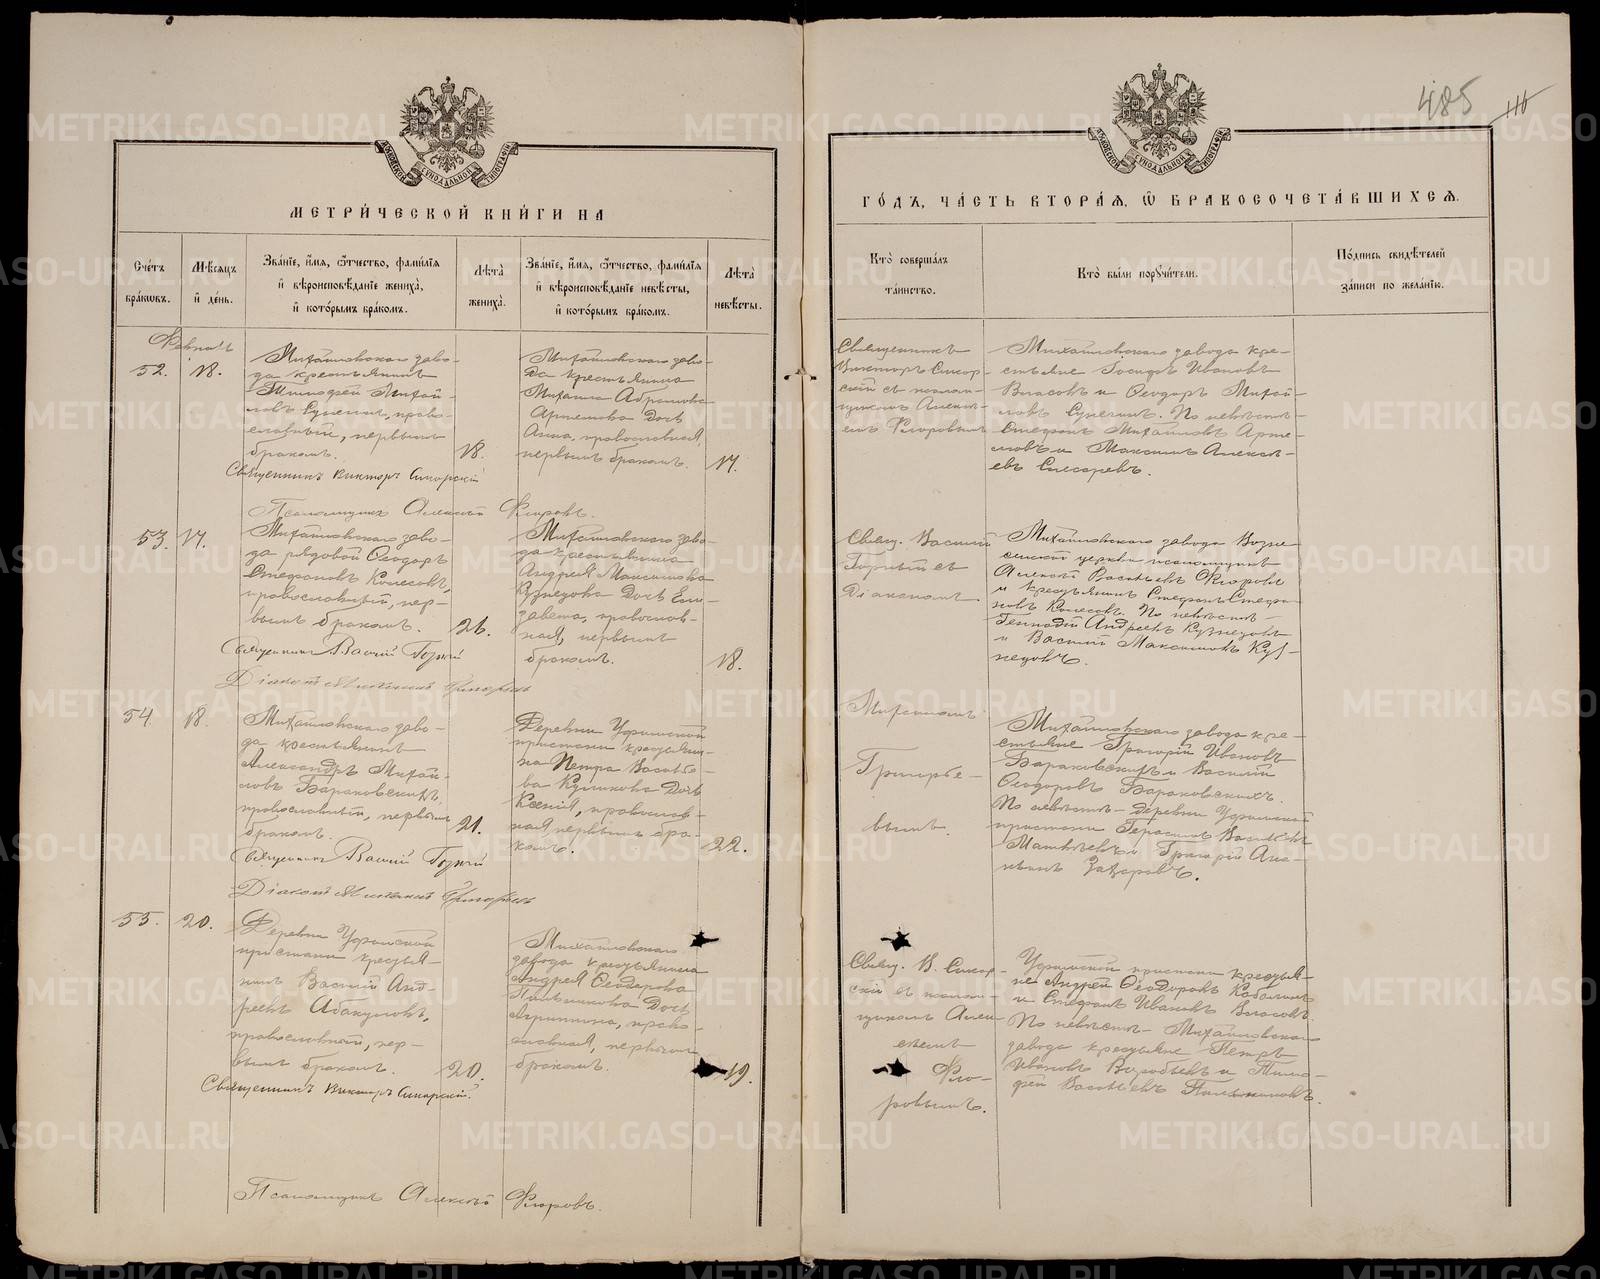 485
116
МЕТРИ́ЧЕСКОЙ КНИ́ГИ НА
ГО́ДЪ, ЧА́СТЬ ВТОРА́Я, Ѽ БРАКОСОЧЕТА́ВШИХСЯ.
Сче́тъ бра́кѡвъ.
Мѣ́сяцъ и де́нь.
Зва́нїе, и́мя, ѻ́тчество, фами́лїя и вѣроисповѣ́данїе жениха̀, и кото́рымъ бра́комъ.
Лѣ́та жениха̀.
Зва́нїе, и́мя, ѻ́тчество, фами́лїя и вѣроисповѣ́данїе невѣ́сты, и кото́рымъ бра́комъ.
Лѣ́та невѣ́сты.
Кто̀ соверша́лъ та́инство.
Кто̀ бы́ли поручи́тели.
По́дпись свидѣ́телей за́писи по жела́нїю.
Февраль
52. 18.
Михайловскаго заво-
да крестьянинъ
Тимофей Михай-
ловъ Супечин, право-
славный, первымъ
бракомъ.
18.
Михайловскаго заво-
да крестьянина
Михаила Абрамова
Артемова дочь
Анна, православная,
первымъ бракомъ.
17.
Священникъ
Викторъ Сикор-
скій съ псалом-
щикомъ Алексѣ-
емъ Флоровымъ
Михайловскаго завода кре-
стьяне Іосифъ Ивановъ
Власовъ и Ѳеодоръ Михай-
ловъ Супечин. По невѣстѣ-
Стефанъ Михайловъ Арте-
мовъ и Максимъ Алексѣ-
евъ Слесаревъ.
Священникъ Викторъ Сикорскій
Псаломщикъ Алексѣй Флоровъ.
53. 17.
Михайловскаго заво-
да рядовой Ѳеодоръ
Стефановъ Колесовъ,
православный, пер-
вымъ бракомъ.
26.
Михайловскаго заво-
да крестьянина
Андрея Максимова
Кузнецова дочь Ели-
завета, православ-
ная, первымъ
бракомъ.
18.
Свящ. Василій
Горный съ
Діакономъ
Михайловскаго завода Возне-
сенской церкви псаломщикъ
Алексѣй Васильевъ Флоровъ
и крестьянинъ Стефанъ Стефа-
новъ Колесовъ. По невѣстѣ-
Геннадій Андреевъ Кузнецовъ
и Василій Максимовъ Куз-
нецовъ.
Священникъ Василій Горный
54. 18.
Михайловскаго заво-
да крестьянинъ
Александръ Михай-
ловъ Бараковскихъ,
православный, первымъ
бракомъ.
21.
Деревни Уфимской
пристани крестьяни-
на Петра Василье-
ва Куликова дочь
Ксенія, православ-
ная, первымъ бра-
комъ.
22.
Григорье-
вымъ.
Михайловскаго завода кре-
стьяне Григорій Ивановъ
Бараковскихъ и Василій
Ѳеодоровъ Бараковскихъ.
По невѣстѣ- деревни Уфимской
пристани Герасимъ Васильевъ
Матвѣевъ и Григорій
Захаровъ.
Священникъ Василій Горный
55. 20.
Деревни Уфимской
пристани крестья-
нинъ Василій Анд-
реевъ Абакумовъ,
православный, пер-
вымъ бракомъ.
20.
Михайловскаго
завода крестьянина
Андрея Ѳеодорова
дочь
Агриппина, право-
славная, первымъ
бракомъ.
19.
Свящ. В. Сикор-
скій съ псалом-
щикомъ Алек-
сѣемъ
Фло-
ровымъ.
Уфимской пристани крестья-
не Андрей Ѳеодоровъ
и Стефанъ Ивановъ Власовъ.
По невѣстѣ- Михайловскаго
завода крестьяне Петръ
Ивановъ Воробьевъ и Тимо-
фей Васильевъ
Священникъ Викторъ Сикорскій
Псаломщикъ Алексѣй Флоровъ.